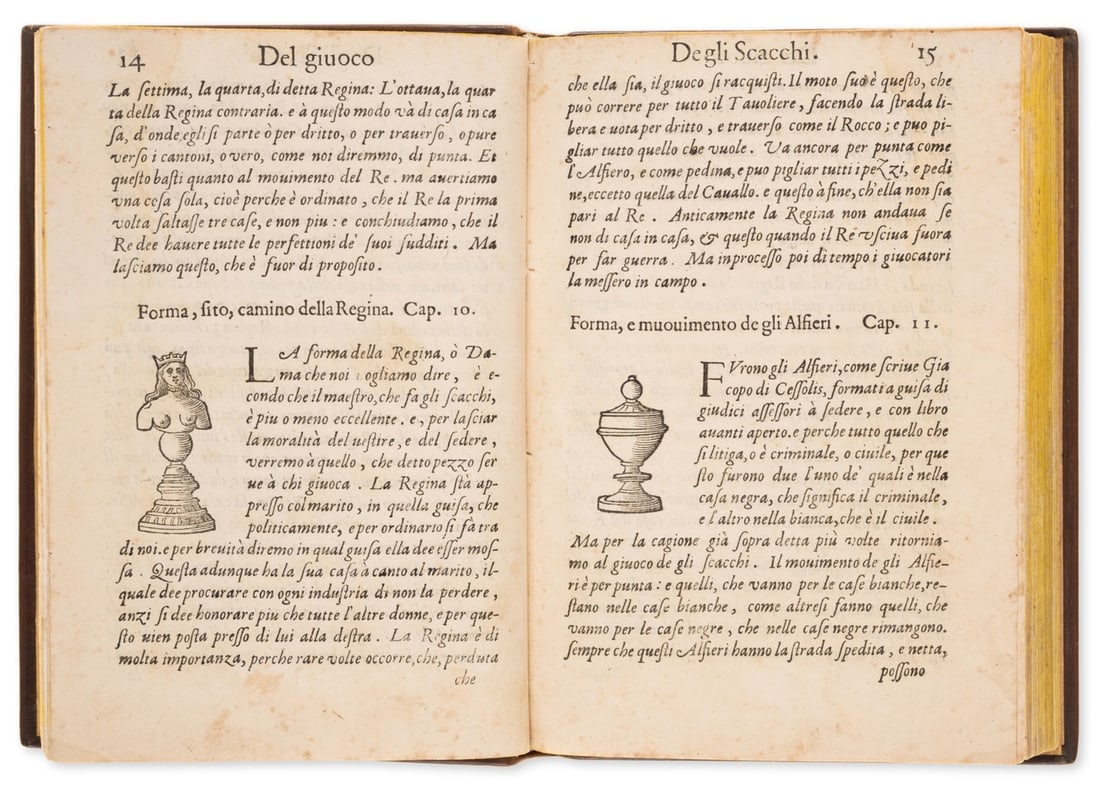 14 Del giuoco
La settima, la quarta, di detta Regina: L'ottaua, la quar
ta della Regina contraria. e à questo modo và di casa in ca
sa, d'onde egli si parte ò per dritto, o per trauerso, o pure
verso i cantoni, o vero, come noi diremmo, di punta. Et
questo basti quanto al mouimento del Re. ma auertiamo
vna cosa sola, cioè perche è ordinato, che il Re la prima
volta saltasse tre case, e non piu: e conchiudiamo, che il
Re dee hauere tutte le perfettioni de' suoi sudditi. Ma
lasciamo questo, che è fuor di proposito.
Forma, sito, camino della Regina. Cap. 10.
LA forma della Regina, ò Da-
ma che noi vogliamo dire, è e-
condo che il maestro, che fa gli scacchi,
è piu o meno eccellente. e, per lasciar
la moralità del uestire, e del sedere,
verremo à quello, che detto pezzo ser
ue à chi giuoca. La Regina stà ap-
presso col marito, in quella guisa, che
politicamente, e per ordinario si fà tra
di noi. e per breuità diremo in qual guisa ella dee esser mos-
sa. Questa adunque ha la sua casa à canto al marito, il-
quale dee procurare con ogni industria di non la perdere,
anzi si dee honorare piu che tutte l'altre donne, e per que-
sto uien posta presso di lui alla destra. La Regina è di
molta importanza, perche rare volte occorre, che, perduta
che
Degli Scacchi. 15
che ella sia, il giuoco si racquisti. Il moto suo è questo, che
può correre per tutto il Tauoliere, facendo la strada li-
bera e uota per dritto, e trauerso come il Rocco; e puo pi-
gliar tutto quello che vuole. Va ancora per punta come
l'Alfiero, e come pedina, e puo pigliar tutti i pezzi, e pedi
ne, eccetto quella del Cauallo. e questo à fine, ch'ella non sia
pari al Re. Anticamente la Regina non andaua se
non di casa in casa, & questo quando il Re vsciua fuora
per far guerra. Ma in processo poi di tempo i giuocatori
la messero in campo.
Forma, e muouimento de gli Alfieri. Cap. 11.
FVrono gli Alfieri, come scriue Gia
copo di Cessolis, formati a guisa di
giudici assessori à sedere, e con libro
auanti aperto. e perche tutto quello che
si litiga, o è criminale, o ciuile, per que
sto furono due l'uno de' quali è nella
casa negra, che significa il criminale,
e l'altro nella bianca, che è il ciuile.
Ma per la cagione già sopra detta più volte ritornia-
mo al giuoco de gli scacchi. Il mouimento de gli Alfie-
ri è per punta: e quelli, che vanno per le case bianche, re-
stano nelle case bianche, come altresi fanno quelli, che
vanno per le case negre, che nelle case negre rimangono.
Sempre che questi Alfieri hanno la strada spedita, e netta,
possono